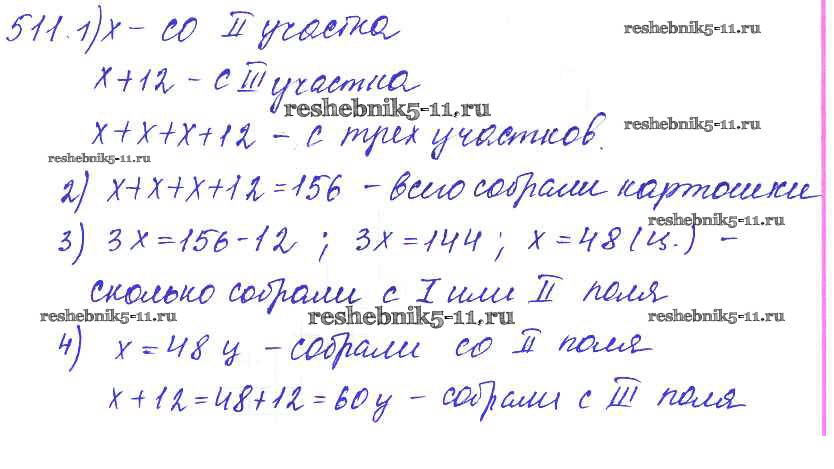 511. 1) x – со II участка
reshebnik5-11.ru
x+12 – с III участка
reshebnik5-11.ru
x+x+x+12 – с трех участков.
reshebnik5-11.ru
reshebnik5-11.ru
2) x+x+x+12=156 – всего собрали картошки
reshebnik5-11.ru
3) 3x=156-12 ; 3x=144 ; x=48 (ц.) –
сколько собрали с I или II поля
reshebnik5-11.ru
reshebnik5-11.ru
reshebnik5-11.ru
4) x=48 ц – собрали со II поля
x+12=48+12=60ц – собрали с III поля